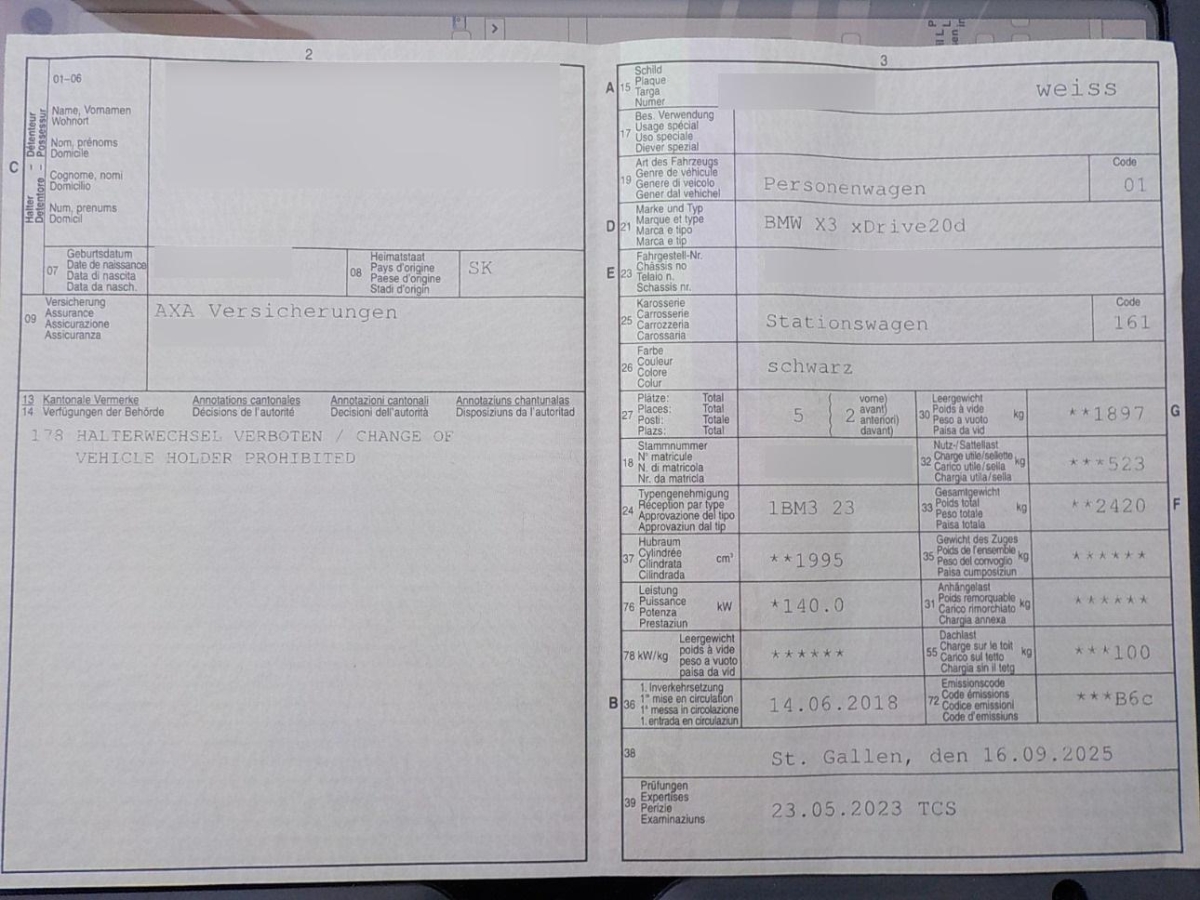 2
01-06
Halter - Détenteur
Detentore - Possessur
C
Name, Vornamen
Wohnort
Nom, prénoms
Domicile
Cognome, nomi
Domicilio
Num, prenums
Domicil
07
Geburtsdatum
Date de naissance
Data di nascita
Data da nasch.
08
Heimatstaat
Pays d'origine
Paese d'origine
Stadi d'origin
SK
09
Versicherung
Assurance
Assicurazione
Assicuranza
AXA Versicherungen
13 Kantonale Vermerke Annotations cantonales Annotazioni cantonali Annotaziuns chantunalas
14 Verfügungen der Behörde Décisions de l'autorité Decisioni dell'autorità Disposiziuns da l'autoritad
178 HALTERWECHSEL VERBOTEN / CHANGE OF
VEHICLE HOLDER PROHIBITED
3
A 15
Schild
Plaque
Targa
Numer
weiss
17
Bes. Verwendung
Usage spécial
Uso speciale
Diever spezial
19
Art des Fahrzeugs
Genre de véhicule
Genere di veicolo
Gener dal vehichel
Personenwagen
Code
01
D 21
Marke und Typ
Marque et type
Marca e tipo
Marca e tip
BMW X3 xDrive20d
E 23
Fahrgestell-Nr.
Châssis no
Telaio n.
Schassis nr.
25
Karosserie
Carrosserie
Carrozzeria
Carossaria
Stationswagen
Code
161
26
Farbe
Couleur
Colore
Colur
schwarz
27
Plätze: Total
Places: Total
Posti: Totale
Plazs: Total
5 ( 2
vorne)
avant)
anteriori)
davant)
30
Leergewicht
Poids à vide
Peso a vuoto
Paisa da vid
kg
**1897
G
18
Stammnummer
N° matricule
N. di matricola
Nr. da matricla
32
Nutz-/Sattellast
Charge utile/sellette
Carico utile/sella
Chargia utila/sella
kg
***523
24
Typengenehmigung
Réception par type
Approvazione del tipo
Approvaziun dal tip
1BM3 23
33
Gesamtgewicht
Poids total
Peso totale
Paisa totala
kg
**2420
F
37
Hubraum
Cylindrée
Cilindrata
Cilindrada
cm³
**1995
35
Gewicht des Zuges
Poids de l'ensemble
Peso del convoglio
Paisa cumposiziun
kg
******
76
Leistung
Puissance
Potenza
Prestaziun
kW
*140.0
31
Anhängelast
Poids remorquable
Carico rimorchiato
Chargia annexa
kg
******
78 kW/kg
Leergewicht
poids à vide
peso a vuoto
paisa da vid
******
55
Dachlast
Charge sur le toit
Carico sul tetto
Chargia sin il tetg
kg
***100
B 36
1. Inverkehrsetzung
1re mise en circulation
1a messa in circolazione
1. entrada en circulaziun
14.06.2018
72
Emissionscode
Code émissions
Codice emissioni
Code d'emissiuns
***B6c
38
St. Gallen, den 16.09.2025
39
Prüfungen
Expertises
Perizie
Examinaziuns
23.05.2023 TCS